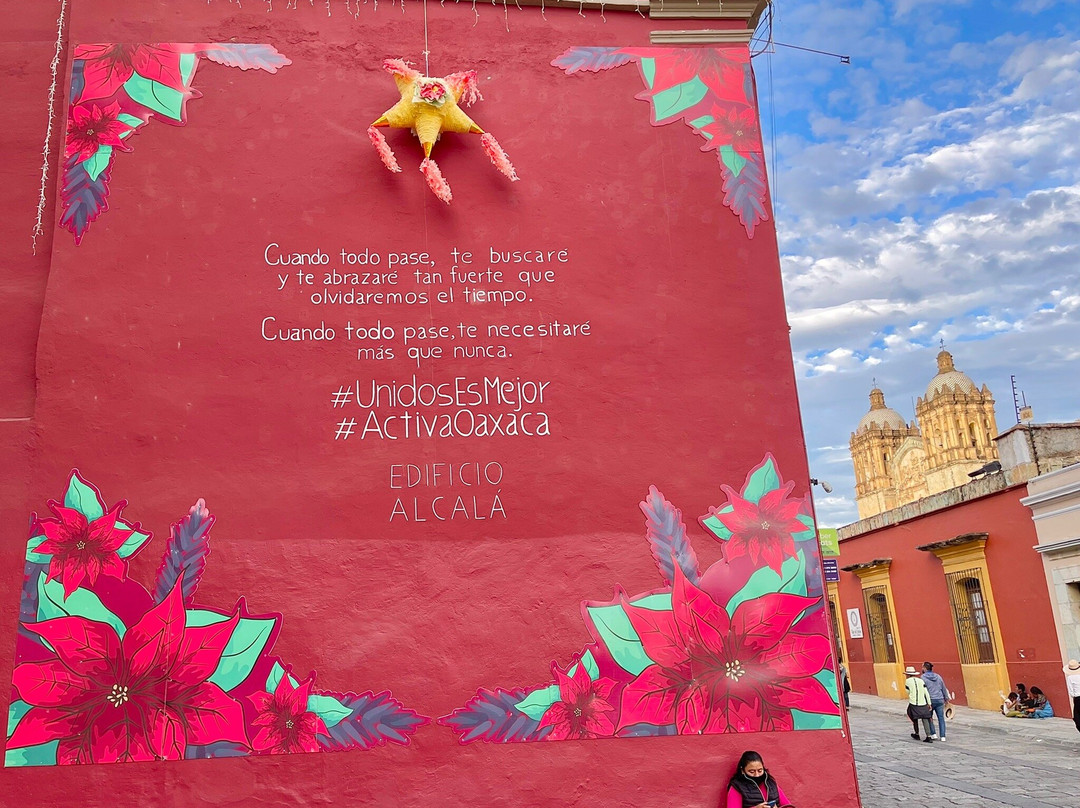 Cuando todo pase, te buscaré
y te abrazaré tan fuerte que
olvidaremos el tiempo.
Cuando todo pase, te necesitaré
más que nunca.
#UnidosEsMejor
#ActivaOaxaca
EDIFICIO
ALCALÁ